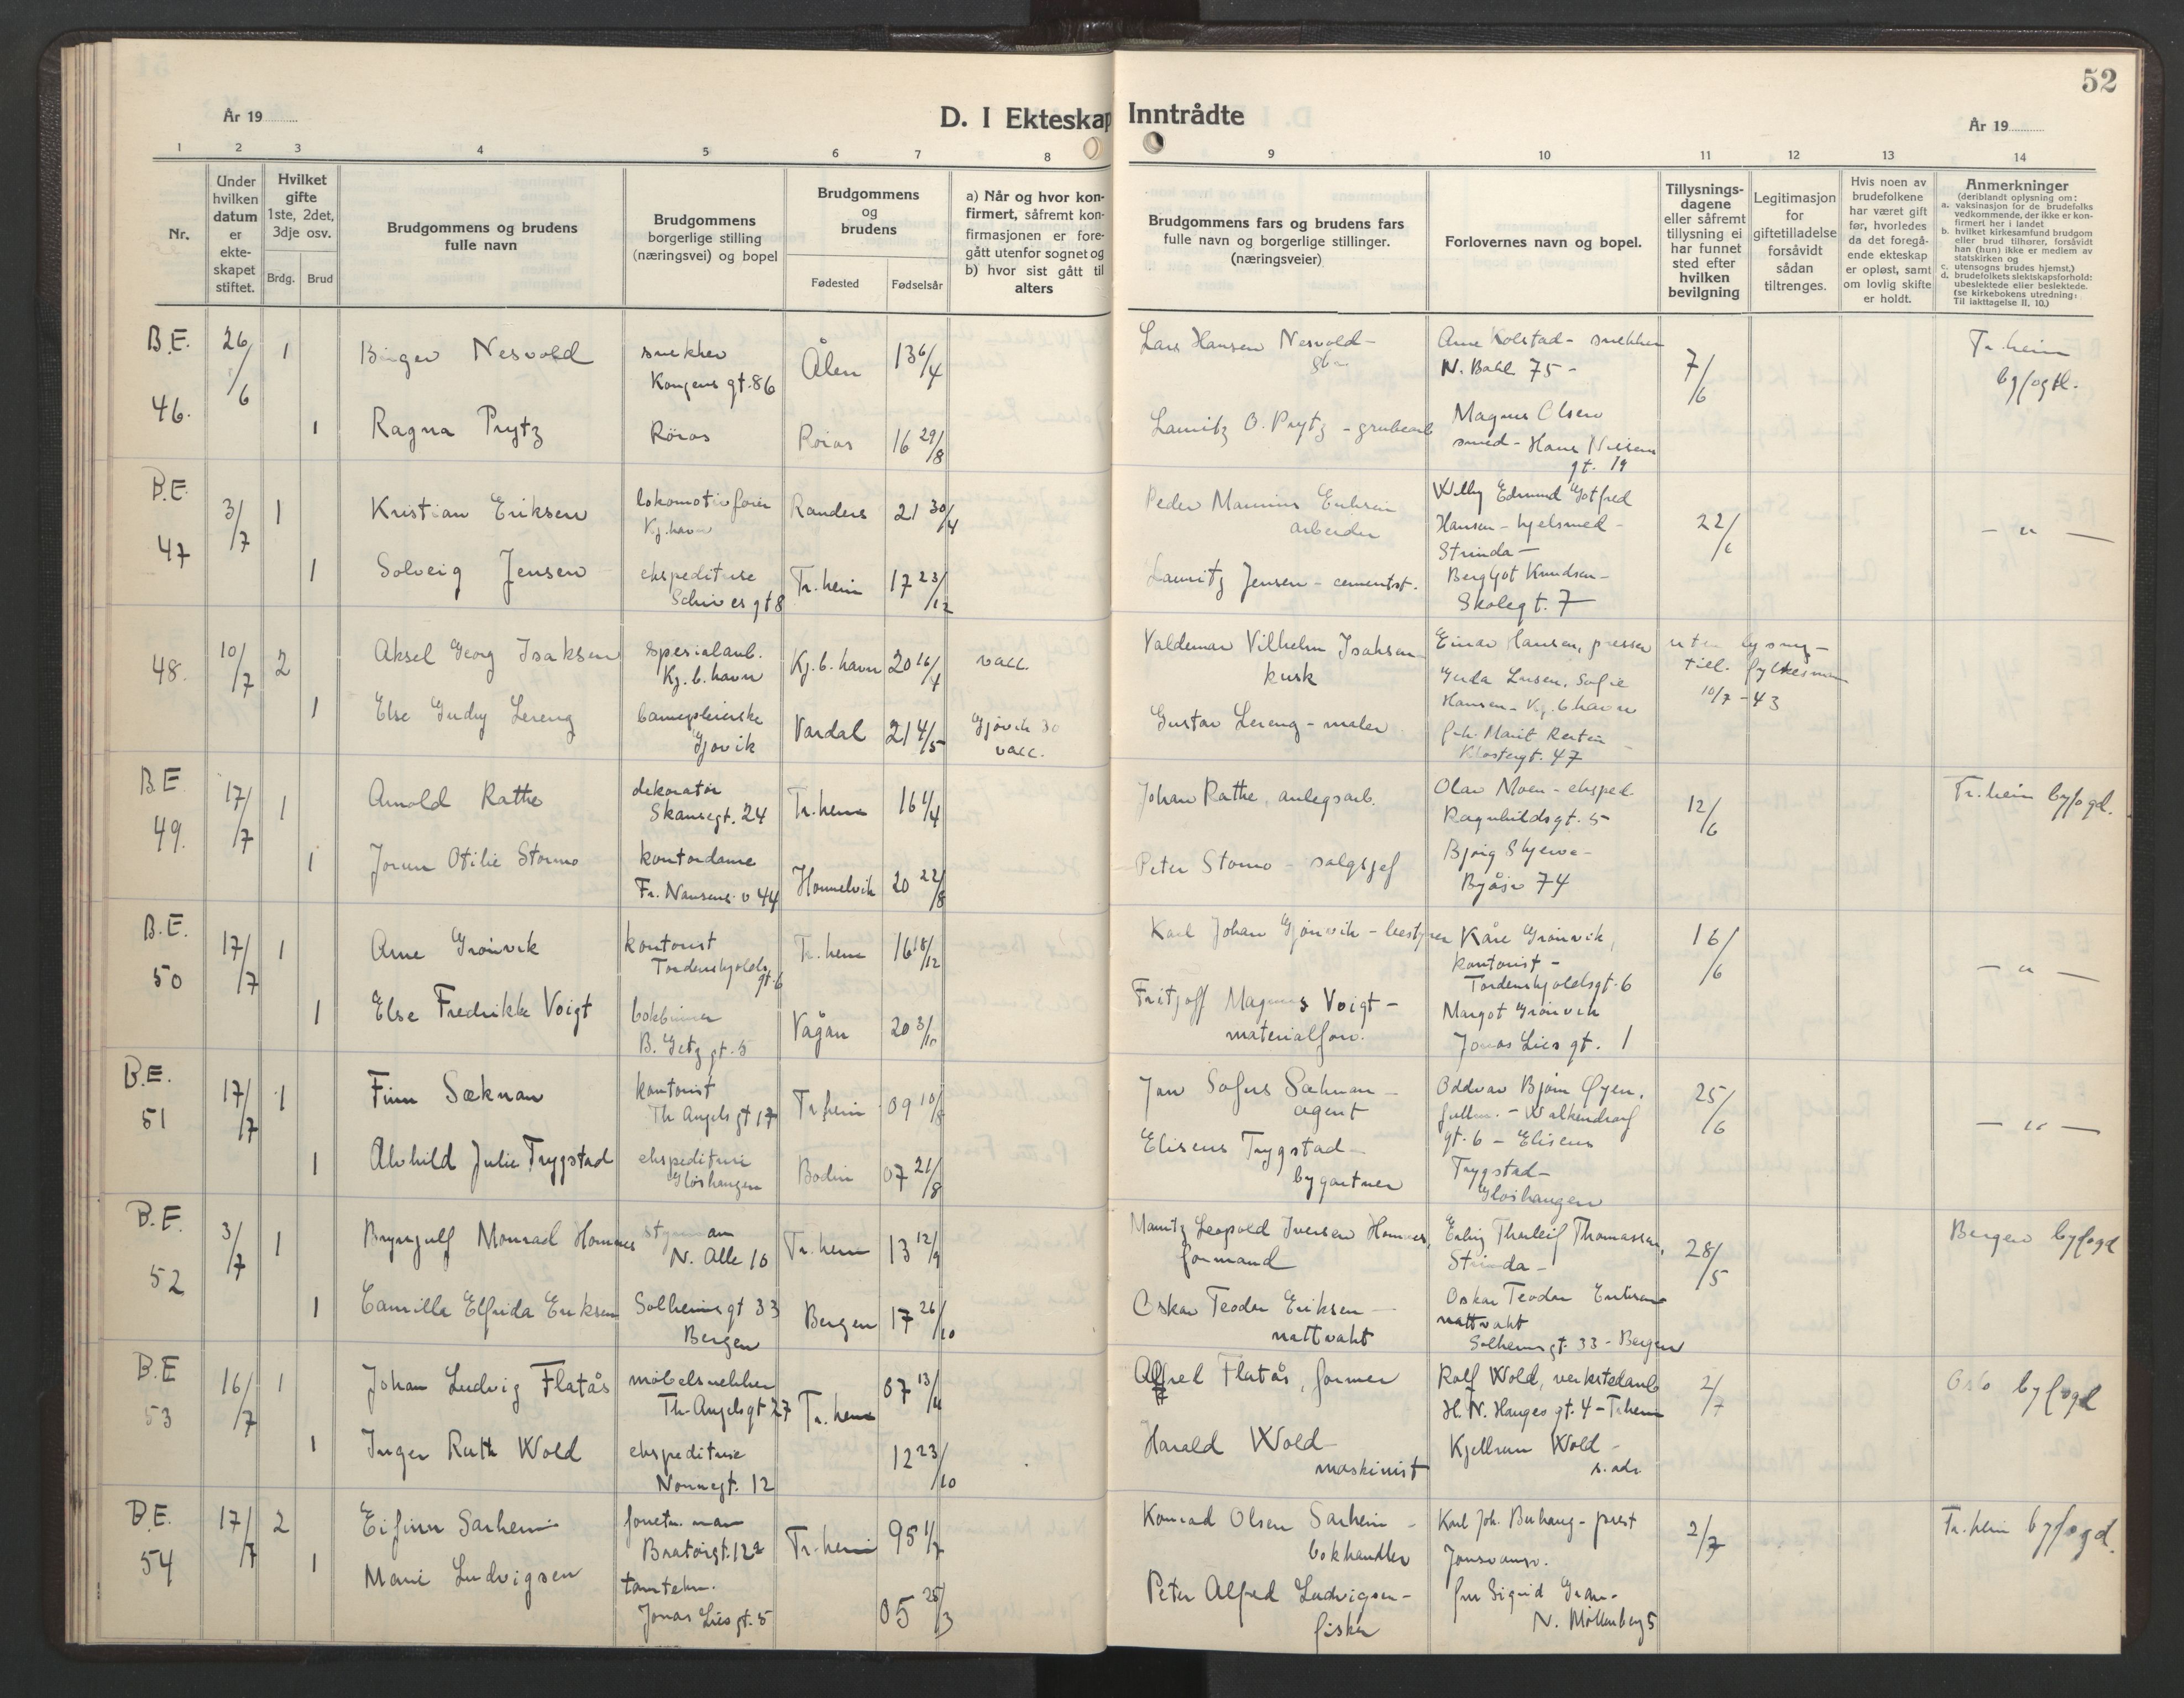 52
År 19
D. I Ekteskap Inntrådte
År 19
1 2 3 4 5 6 7 8 9 10 11 12 13 14
Nr.
Under hvilken datum er ekteskapet stiftet.
Hvilket gifte 1ste, 2det, 3dje osv.
Brdg. Brud
Brudgommens og brudens fulle navn
Brudgommens borgerlige stilling (næringsvei) og bopel
Brudgommens og brudens
Fødested Fødselsår
a) Når og hvor konfirmert, såfremt konfirmasjonen er foregått utenfor sognet og
b) hvor sist gått til alters
Brudgommens fars og brudens fars fulle navn og borgerlige stillinger. (næringsveier)
Forlovernes navn og bopel.
Tillysningsdagene eller såfremt tillysning ei har funnet sted efter hvilken bevilgning
Legitimasjon for giftetilladelse forsåvidt sådan tiltrenges.
Hvis noen av brudefolkene har været gift før, hvorledes da det foregående ekteskap er opløst, samt om lovlig skifte er holdt.
Anmerkninger
(deriblandt oplysning om:
a. vaksinasjon for de brudefolks vedkommende, der ikke er konfirmert her i landet
b. hvilket kirkesamfund brudgom eller brud tilhører, forsåvidt han (hun) ikke er medlem av statskirken og
c. utensogns brudes hjemst.)
d. brudefolkets slektskapsforhold: ubeslektede eller beslektede.
(se kirkebokens utredning: Til iakttagelse II. 10.)
B.E. 46. 26/6 1 Birger Nesvold snekker Kongens gt. 86 Ålen 13 6/4 Lars Hansen Nesvold - Arne Kolstad - snekker N. Bakl. 75 - 7/6 Tr.heim byfogd.
1 Ragna Prytz Röros Röros 16 29/8 Lauritz O. Prytz - grubearb Magnus Olsen smed - Hans Nissens gt. 19
B.E. 47 3/7 1 Kristian Eriksen lokomotivfører Kj.havn Randers 21 30/4 Peder Marinus Eriksen arbeider Willy Edmund Gotfred Hansen - hjelsmed - Strinda - 22/6 - " -
1 Solveig Jensen ekspeditrise Schives gt 8 Tr.heim 17 23/12 Lauritz Jensen - cementst. Bergljot Knudsen - Skolegt. 7
48. 10/7 2 Aksel Georg Isaksen spesialarb. Kj.b.havn Kj.b.havn 20 16/4 vacc. Valdemar Vilhelm Isaksen kusk Einar Hansen, presser uten lysing - till. fylkesman 10/7 - 43
1 Else Gudny Lereng barnepleierske Gjøvik Vardal 21 4/5 Gjøvik 30 vacc. Gustav Lereng - maler Sofie Hansen - Kj.b.havn Marit Klostergt. 47
B.E. 49. 17/7 1 Arnold Rathe dekoratør Skansegt. 24 Tr.heim 16 1/4 Johan Rathe, anlegsarb. Olav Moen - eksped. Ragnhildsgt. 5 12/6 Tr.heim byfogd.
1 Jorun Otilie Stormo kontordame Fr. Nansens v 44 Hommelvik 20 22/8 Peter Stormo - salgsjef Bjørg Skjerve - Byåsv 74
B.E. 50 17/7 1 Arne Grönvik kontorist Tordenskjolds gt. 6 Tr.heim 16 18/12 Karl Johan Grönvik - bestyrer Kåre Grönvik, kontorist - Tordenskjoldsgt. 6 16/6 - " -
1 Else Fredrikke Voigt bokbinner B. Getz gt. 5 Vågan 20 3/10 Fritjoff Magnus Voigt - materialforv. Margot Grönvik Jonas Lies gt. 1
B.E. 51 17/7 1 Finn Sæknan kontorist Th Angels gt 17 Tr.heim 09 10/8 Jan Sofus Sæknan - agent Oddvar Bjørn Øyen, gt. 6 - Eliseus Trygstad - Gløshaugen 25/6 - " -
1 Alvhild Julie Trygstad ekspeditrise Gløshaugen Bodin 07 21/8 Eliseus Trygstad - bygartner
B.E. 52 3/7 1 Brynjulf Monrad Homnes styrman N. Alle 10 Tr.heim 13 12/9 Mauritz Leopold Iversen Homnes, formand Erling Thorleif Thomassen, Strinda - 28/5 Bergen byfogd
1 Camilla Elfrida Eriksen Solheimsgt 33 Bergen Bergen 17 26/10 Oskar Teodor Eriksen - nattvakt Oskar Teodor Eriksen nattvakt Solheimsgt. 33 - Bergen
B.E 53 16/7 1 Johan Ludvig Flatås møbelsnekker Th. Angelsgt 27 Tr.heim 07 13/4 Alfred Flatås, former Rolf Wold, verkstedarb H.N. Hauges gt. 4 - Tr.heim 2/7 Oslo byfogd
1 Inger Ruth Wold ekspeditrise Nonnegt. 12 12 23/10 Harald Wold - maskinist Kjellrun Wold - s. adr.
B.E. 54 17/7 2 Eifinn Sarheim forretn. man Bratörgt. 12 a Tr.heim 95 1/7 Konrad Olsen Sarheim - bokhandler Karl Joh. Buhaug - prest Jonsvansv. 2/7 Tr.heim byfogd.
1 Marie Ludvigsen tanntekn. Jonas Liesgt. 5 05 25/3 Peter Alfred Ludvigsen - fisker fru Sigrid Gran - N. Møllenberg 5